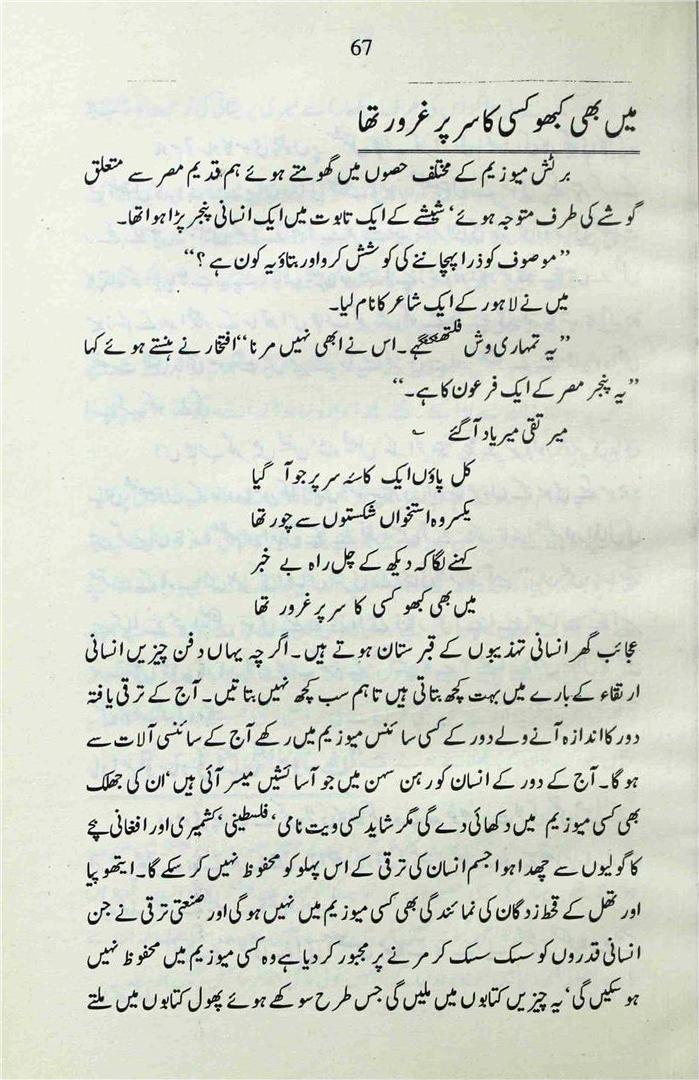 67
میں بھی کبھو کسی کا سر پر غرور تھا
برٹش میوزیم کے مختلف حصوں میں گھومتے ہوئے ہم قدیم مصر سے متعلق
گوشے کی طرف متوجہ ہوئے‘ شیشے کے ایک تابوت میں ایک انسانی پنجر پڑا ہوا تھا۔
’’موصوف کو ذرا پہچاننے کی کوشش کرو اور بتاؤ یہ کون ہے ؟‘‘
میں نے لاہور کے ایک شاعر کا نام لیا۔
’’یہ تمہاری وش ہے۔ اس نے ابھی نہیں مرنا‘‘ افتخار نے ہنستے ہوئے کہا
’’یہ پنجر مصر کے ایک فرعون کا ہے۔‘‘
میر تقی میر یاد آگئے ؎
کل پاؤں ایک کاسہ سر پر جو آ گیا
یکسر وہ استخواں شکستوں سے چور تھا
کہنے لگا کہ دیکھ کے چل راہ بے خبر
میں بھی کبھو کسی کا سر پر غرور تھا
عجائب گھر انسانی تہذیبوں کے قبرستان ہوتے ہیں۔ اگرچہ یہاں دفن چیزیں انسانی
ارتقاء کے بارے میں بہت کچھ بتاتی ہیں تاہم سب کچھ نہیں بتاتیں۔ آج کے ترقی یافتہ
دور کا اندازہ آنے والے دور کے کسی سائنس میوزیم میں رکھے آج کے سائنسی آلات سے
ہوگا۔ آج کے دور کے انسان کو رہن سہن میں جو آسائشیں میسر آئی ہیں‘ ان کی جھلک
بھی کسی میوزیم میں دکھائی دے گی مگر شاید کسی ویت نامی‘ فلسطینی‘ کشمیری اور افغانی بچے
کا گولیوں سے چھدا ہوا جسم انسان کی ترقی کے اس پہلو کو محفوظ نہیں کر سکے گا۔ ایتھوپیا
اور تھل کے قحط زدگان کی نمائندگی بھی کسی میوزیم میں نہیں ہوگی اور صنعتی ترقی نے جن
انسانی قدروں کو سسک سسک کر مرنے پر مجبور کر دیا ہے وہ کسی میوزیم میں محفوظ نہیں
ہو سکیں گی‘ یہ چیزیں کتابوں میں ملیں گی جس طرح سوکھے ہوئے پھول کتابوں میں ملتے